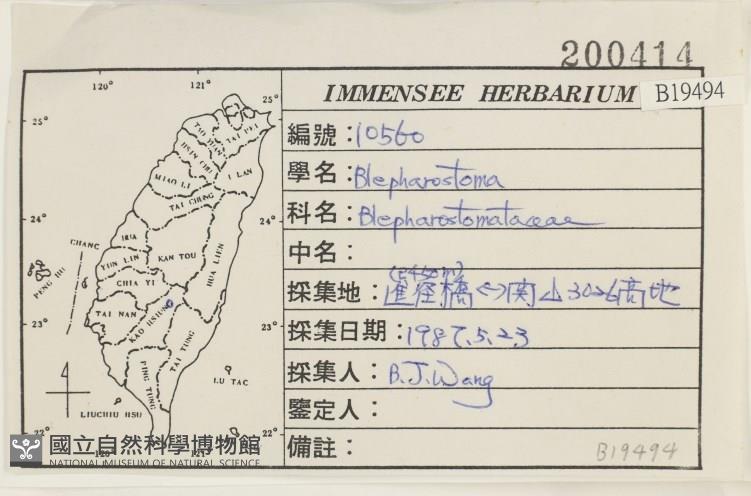 200414
IMMENSEE HERBARIUM
B19494
編號：10560
學名：Blepharostoma
科名：Blepharostomataceae
中名：
採集地：進徑橋<->関山3026高地
採集日期：1987.5.23
採集人：B.J.Wang
鑒定人：
備註：
B19494
120° 121°
25° 25°
24° 24°
23° 23°
22° 22°
120° 121°
TAI PEI
TAO YUAN
HSIN CHU
I LAN
MIAO LI
TAI CHUNG
HUA
CHANG
YUN LIN
KAN TOU
HUA LIEN
PENG HU
CHIA YI
TAI NAN
KAO HSIUNG
TAI TUNG
PING TUNG
LU TAO
LIUCHIU HSU
國立自然科學博物館
NATIONAL MUSEUM OF NATURAL SCIENCE